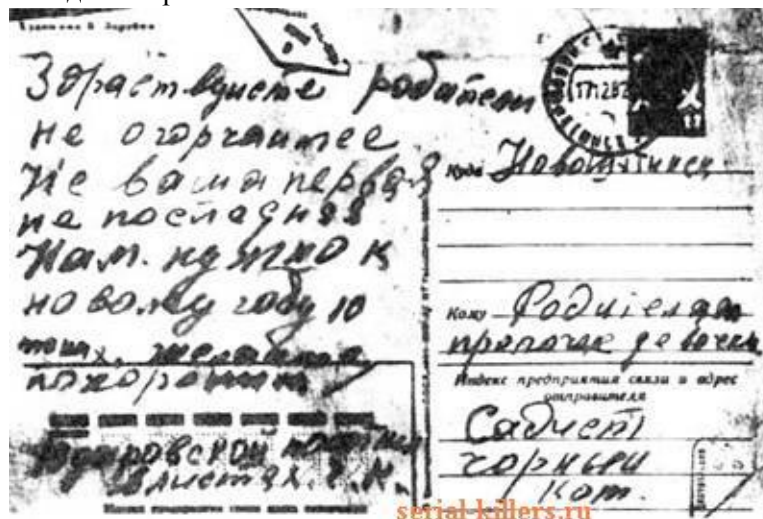 Здраствуисте родители
не огорчаитее
Не ваша первая
не последняя
Нам. нужно к
новому году 10
похоронит
Куда Новошахтинск
Кому Родителям
пропачае девочки
Индекс предприятия связи и адрес
отправителя
Садист
чорный
кот.
serial-killers.ru